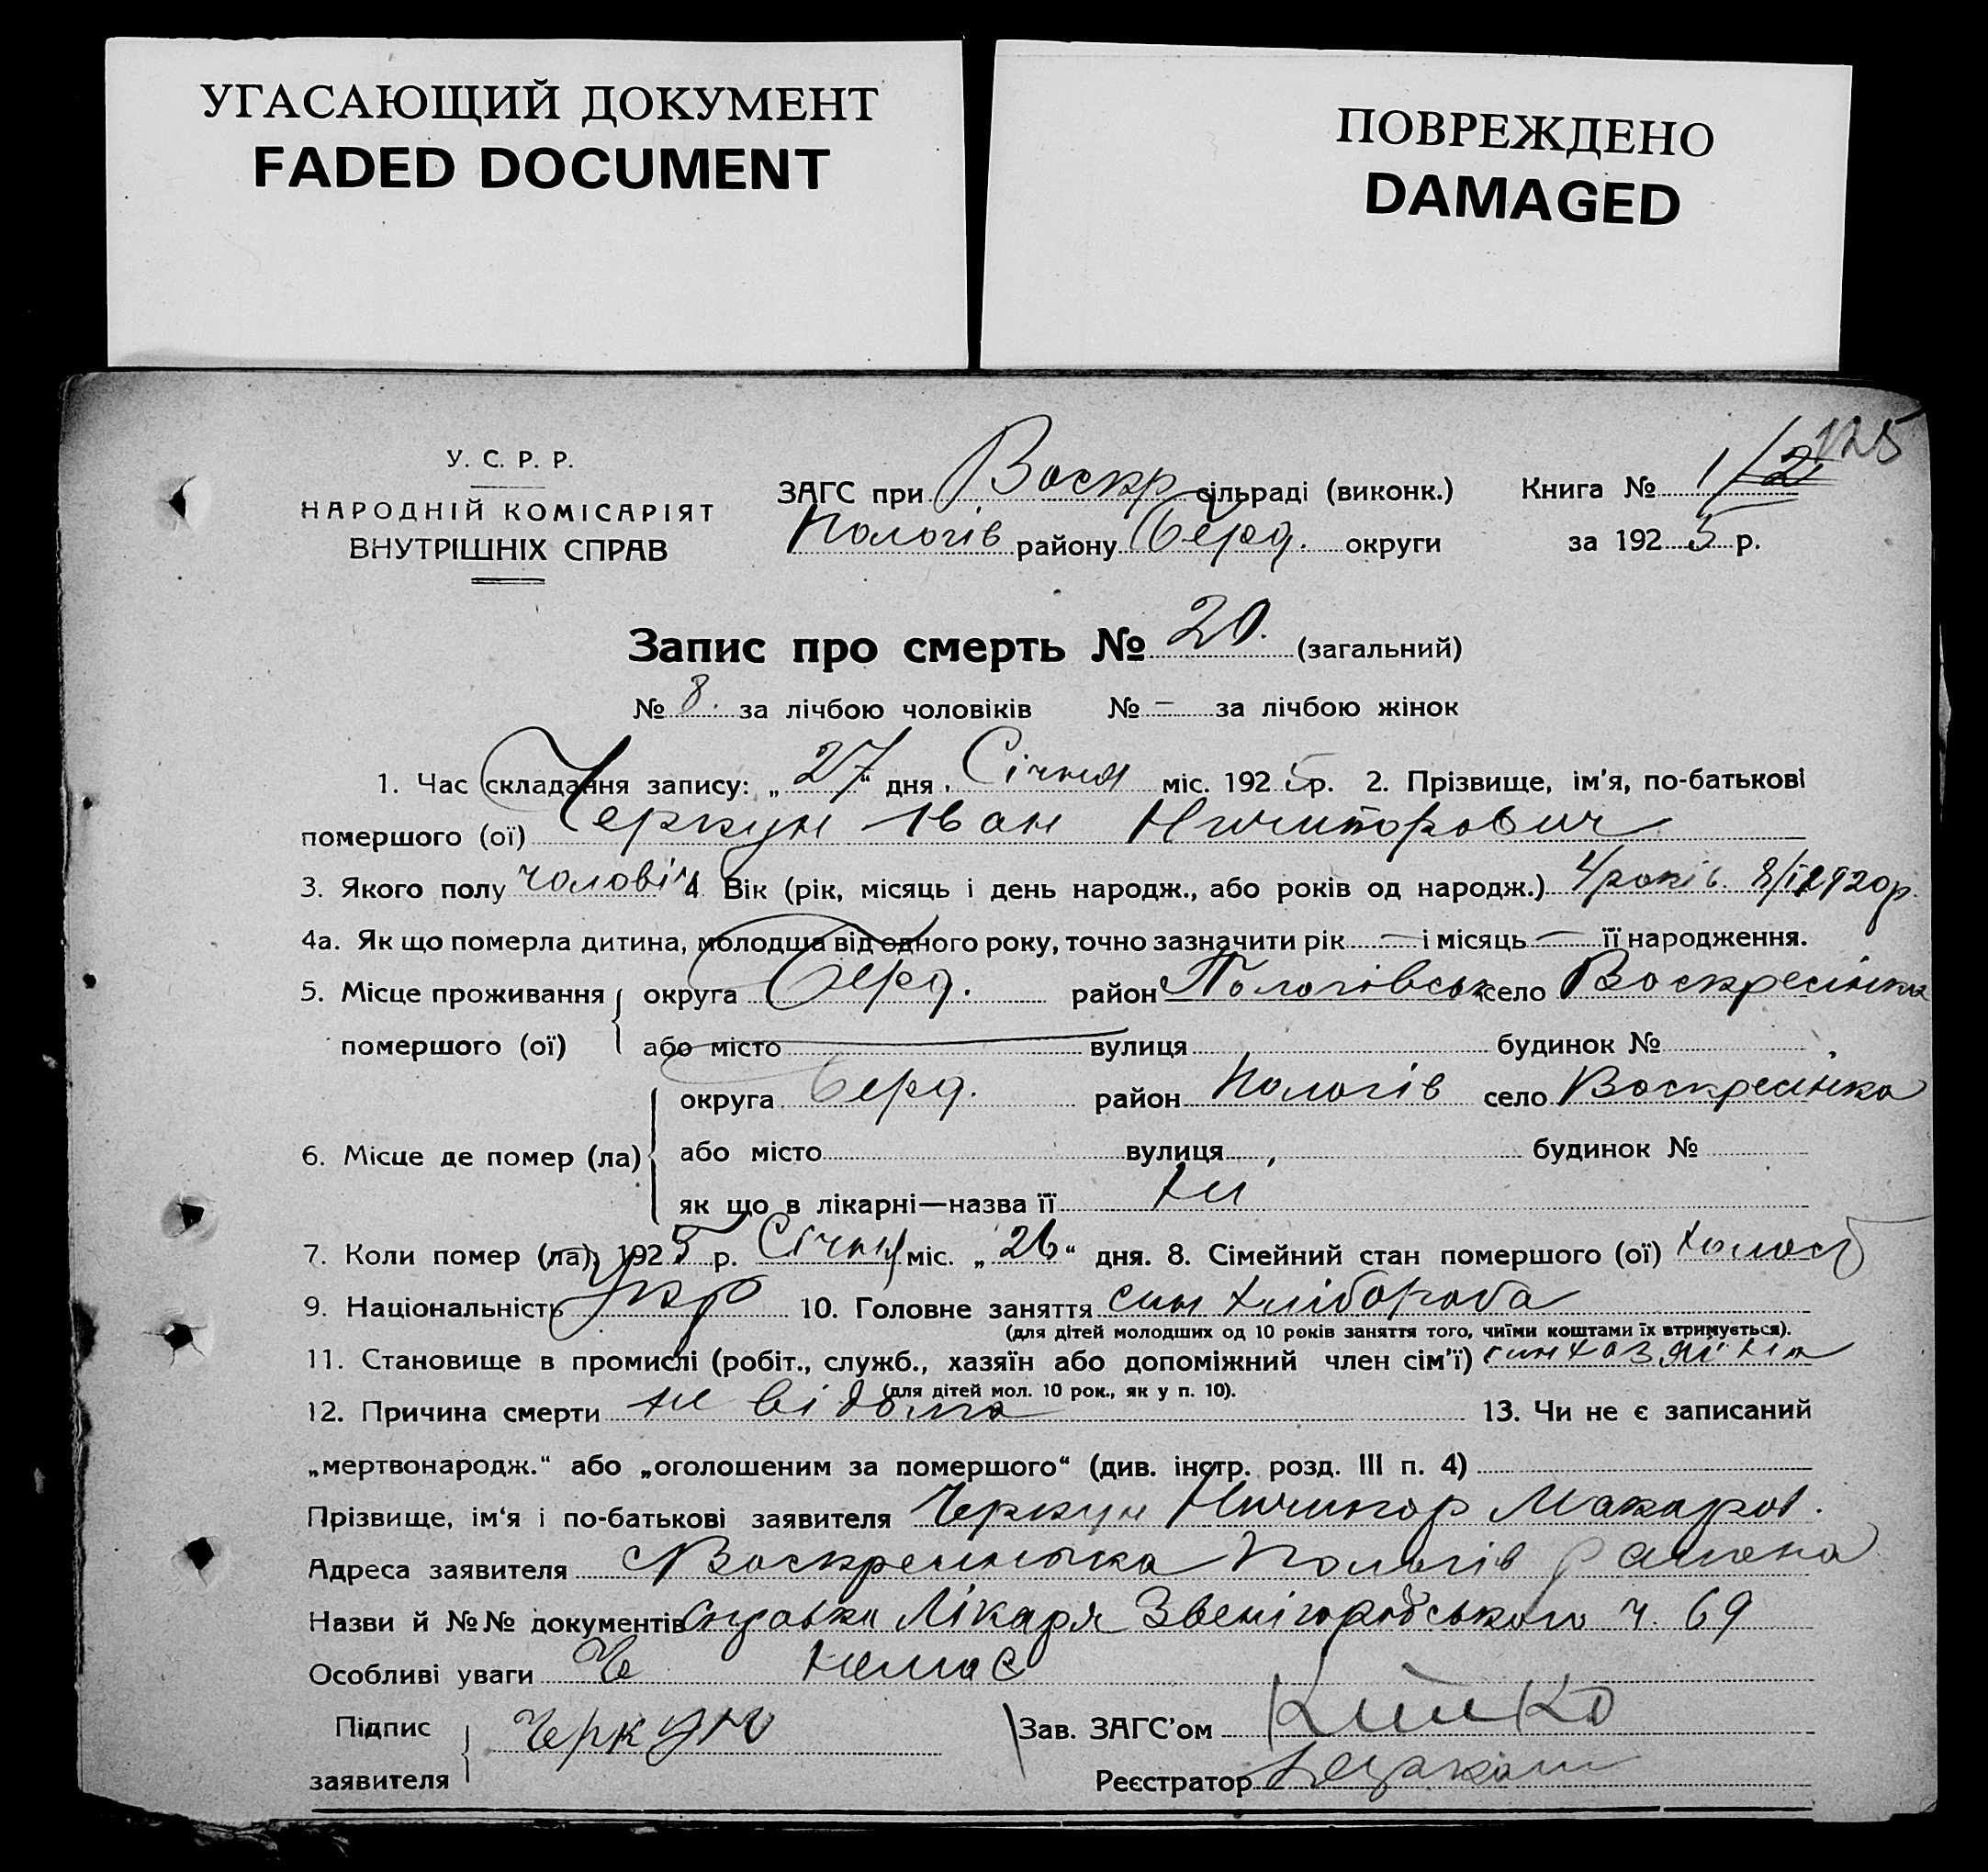 УГАСАЮЩИЙ ДОКУМЕНТ
FADED DOCUMENT
ПОВРЕЖДЕНО
DAMAGED
125
У. С. Р. Р.
НАРОДНІЙ КОМІСАРІЯТ
ВНУТРІШНІХ СПРАВ
ЗАГС при Воскр сільраді (виконк.) Книга № 1/2
Пологів району Берд. округи за 1925 р.
Запис про смерть № 20. (загальний)
№ 8. за лічбою чоловіків № – за лічбою жінок
1. Час складання запису: „27“ дня Січня міс. 1925 р. 2. Прізвище, ім'я, по-батькові
помершого (ої) Черкун Іван Ничипорович
3. Якого полу чоловіч 4 Вік (рік, місяць і день народж., або років од народж.) 4 років. 8/I 1920 р.
4а. Як що померла дитина, молодша від одного року, точно зазначити рік — і місяць — її народження.
5. Місце проживання округа Берд. район Пологівськ село Воскресінка
помершого (ої) або місто вулиця будинок №
округа Берд. район Пологів село Воскресінка
6. Місце де помер (ла) або місто вулиця будинок №
як що в лікарні—назва її ні
7. Коли помер (ла) 1925 р. Січня міс. „26“ дня. 8. Сімейний стан помершого (ої) холост
9. Національність Укр 10. Головне заняття син хлібороба
(для дітей молодших од 10 років заняття того, чиїми коштами їх втримується).
11. Становище в промислі (робіт., служб., хазяїн або допоміжний член сім'ї) син хазяїна
(для дітей мол. 10 рок., як у п. 10).
12. Причина смерти не відома 13. Чи не є записаний
„мертвонародж.“ або „оголошеним за помершого“ (див. інстр. розд. III п. 4)
Прізвище, ім'я і по-батькові заявителя Черкун Ничипор Макаров.
Адреса заявителя Воскресинька Пологів района
Назви й №№ документів Справка Лікаря Звенігородського ч. 69
Особливі уваги немає
Підпис Черкун Зав. ЗАГС'ом
заявителя Реєстратор